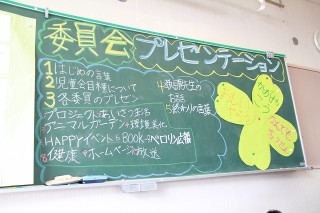 委員会プレゼンテーション
1 はじめの言葉
2 児童会目標について
3 各委員のプレゼン
プロジェクトあいさつ生活
アニマルガーデン・環境美化
HAPPYイベント BOOK ペロリン広報
健康 ホームページ 放送
4 先生の
お話
5 終わりの言葉